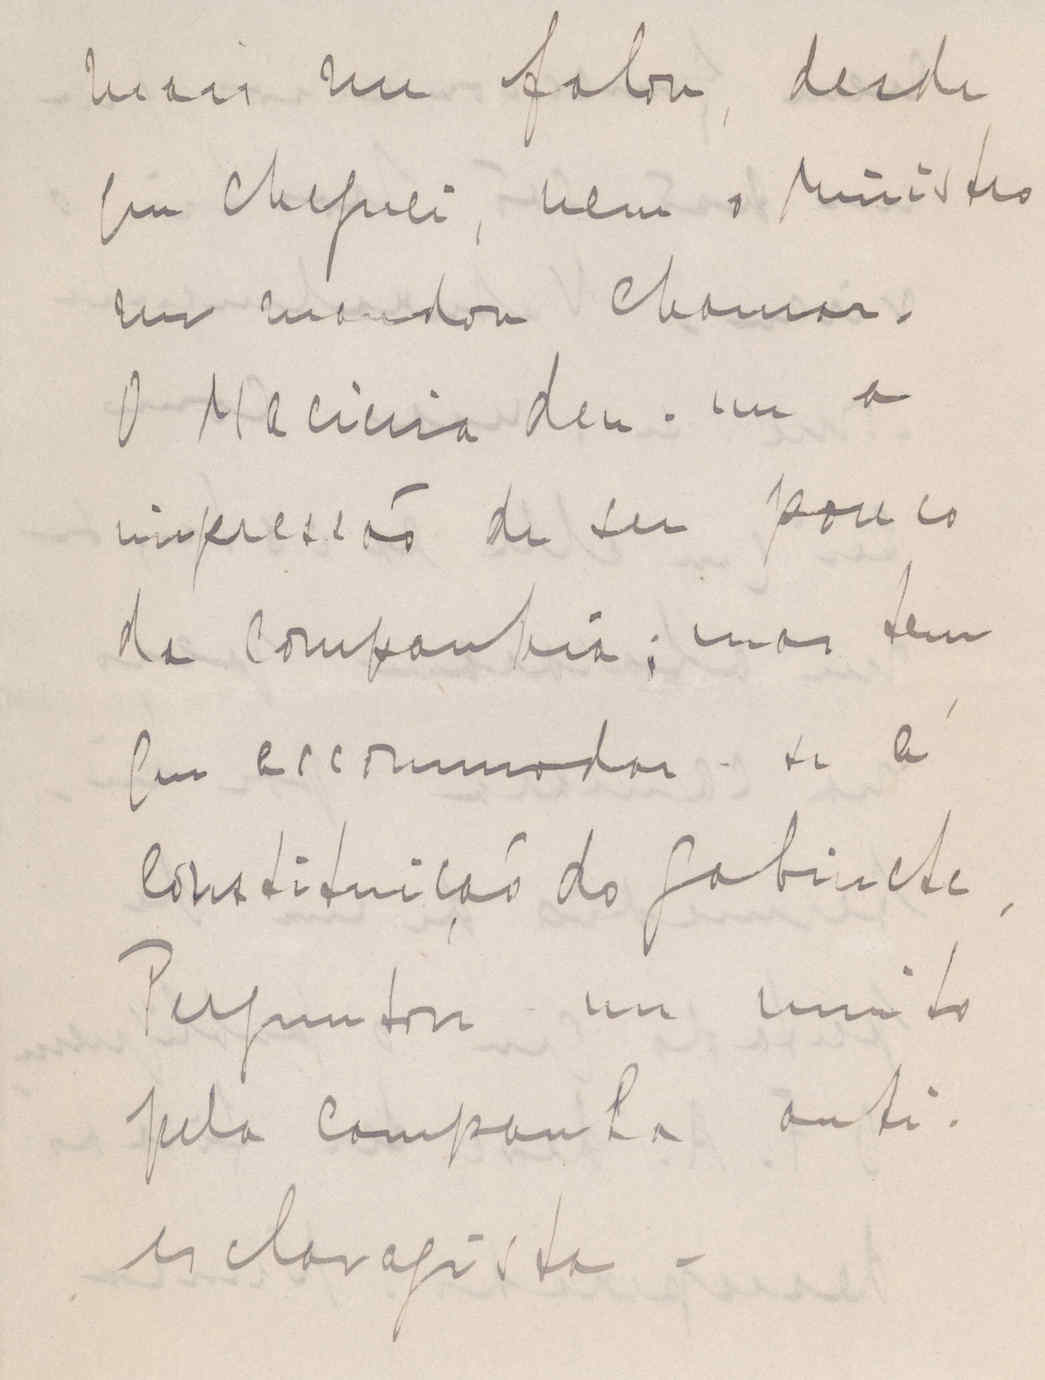 mais me falou, desde
que cheguei, nem o Ministro
me mandou chamar.
O Macieira deu-me a
impressão de ser pouco
da companhia; mas tem
que accommodar-se á
constituição do gabinete,
Perguntou-me muito
pela campanha anti-
esclavagista -